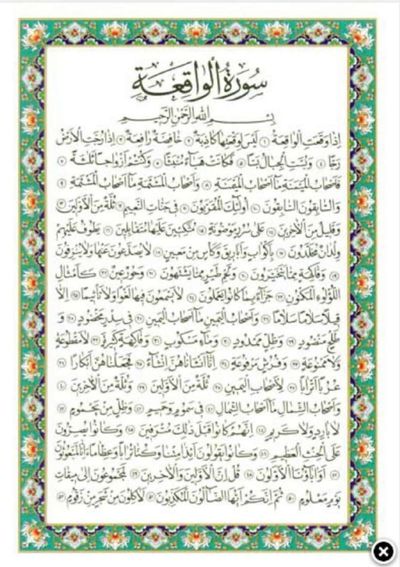 سورة الواقعة
بسم الله الرحمن الرحيم
إذا وقعت الواقعة ۱ ليس لوقعتها كاذبة ۲ خافضة رافعة ۳ إذا رجت الأرض
رجا ۴ وبست الجبال بسا ۵ فكانت هباء منبثا ۶ وكنتم أزواجا ثلثة ۷
فأصحاب الميمنة ما أصحاب الميمنة ۸ وأصحاب المشئمة ما أصحاب المشئمة ۹
والسابقون السابقون ۱۰ أولئك المقربون ۱۱ في جنات النعيم ۱۲ ثلة من الأولين ۱۳
وقليل من الآخرين ۱۴ على سرر موضونة ۱۵ متكئين عليها متقابلين ۱۶ يطوف عليهم
ولدان مخلدون ۱۷ بأكواب وأباريق وكأس من معين ۱۸ لا يصدعون عنها ولا ينزفون
۱۹ وفاكهة مما يتخيرون ۲۰ ولحم طير مما يشتهون ۲۱ وحور عين ۲۲ كأمثال
اللؤلؤ المكنون ۲۳ جزاء بما كانوا يعملون ۲۴ لا يسمعون فيها لغوا ولا تأثيما ۲۵ إلا
قيلا سلاما سلاما ۲۶ وأصحاب اليمين ما أصحاب اليمين ۲۷ في سدر مخضود ۲۸ و
طلح منضود ۲۹ وظل ممدود ۳۰ وماء مسكوب ۳۱ وفاكهة كثيرة ۳۲ لا مقطوعة
ولا ممنوعة ۳۳ وفرش مرفوعة ۳۴ إنا أنشأناهن إنشاء ۳۵ فجعلناهن أبكارا ۳۶
عربا أترابا ۳۷ لأصحاب اليمين ۳۸ ثلة من الأولين ۳۹ وثلة من الآخرين ۴۰
وأصحاب الشمال ما أصحاب الشمال ۴۱ في سموم وحميم ۴۲ وظل من يحموم ۴۳
لا بارد ولا كريم ۴۴ إنهم كانوا قبل ذلك مترفين ۴۵ وكانوا يصرون
على الحنث العظيم ۴۶ وكانوا يقولون أئذا متنا وكنا ترابا وعظاما أئنا لمبعوثون
۴۷ أو آباؤنا الأولون ۴۸ قل إن الأولين والآخرين ۴۹ لمجموعون إلى ميقات
يوم معلوم ۵۰ ثم إنكم أيها الضالون المكذبون ۵۱ لآكلون من شجر من زقوم ۵۲